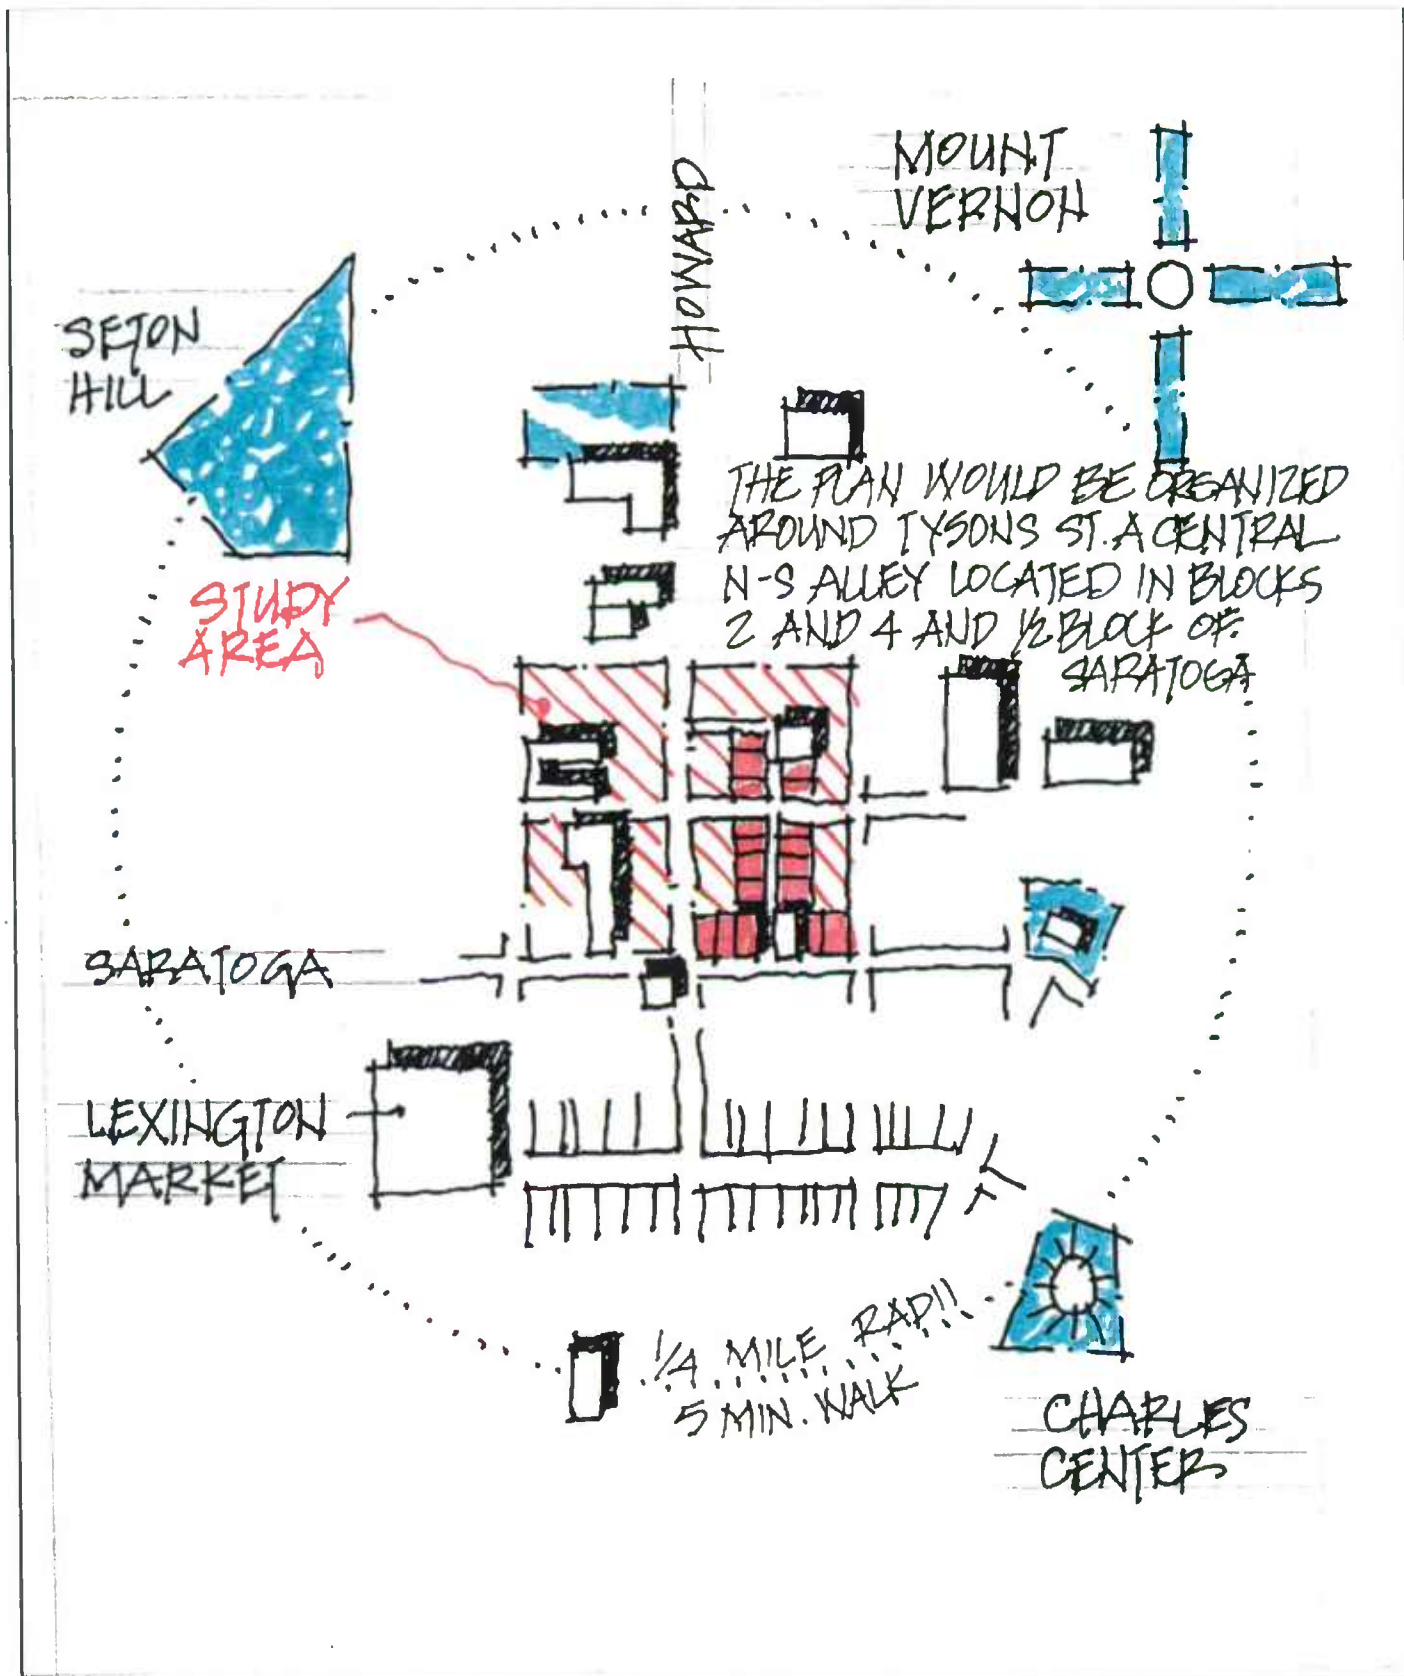 HOWARD
MOUNT
VERNON
SETON
HILL
THE PLAN WOULD BE ORGANIZED
AROUND TYSONS ST. A CENTRAL
N-S ALLEY LOCATED IN BLOCKS
2 AND 4 AND 1/2 BLOCK OF
SARATOGA
STUDY
AREA
SARATOGA
LEXINGTON
MARKET
1/4 MILE RADII
5 MIN. WALK
CHARLES
CENTER